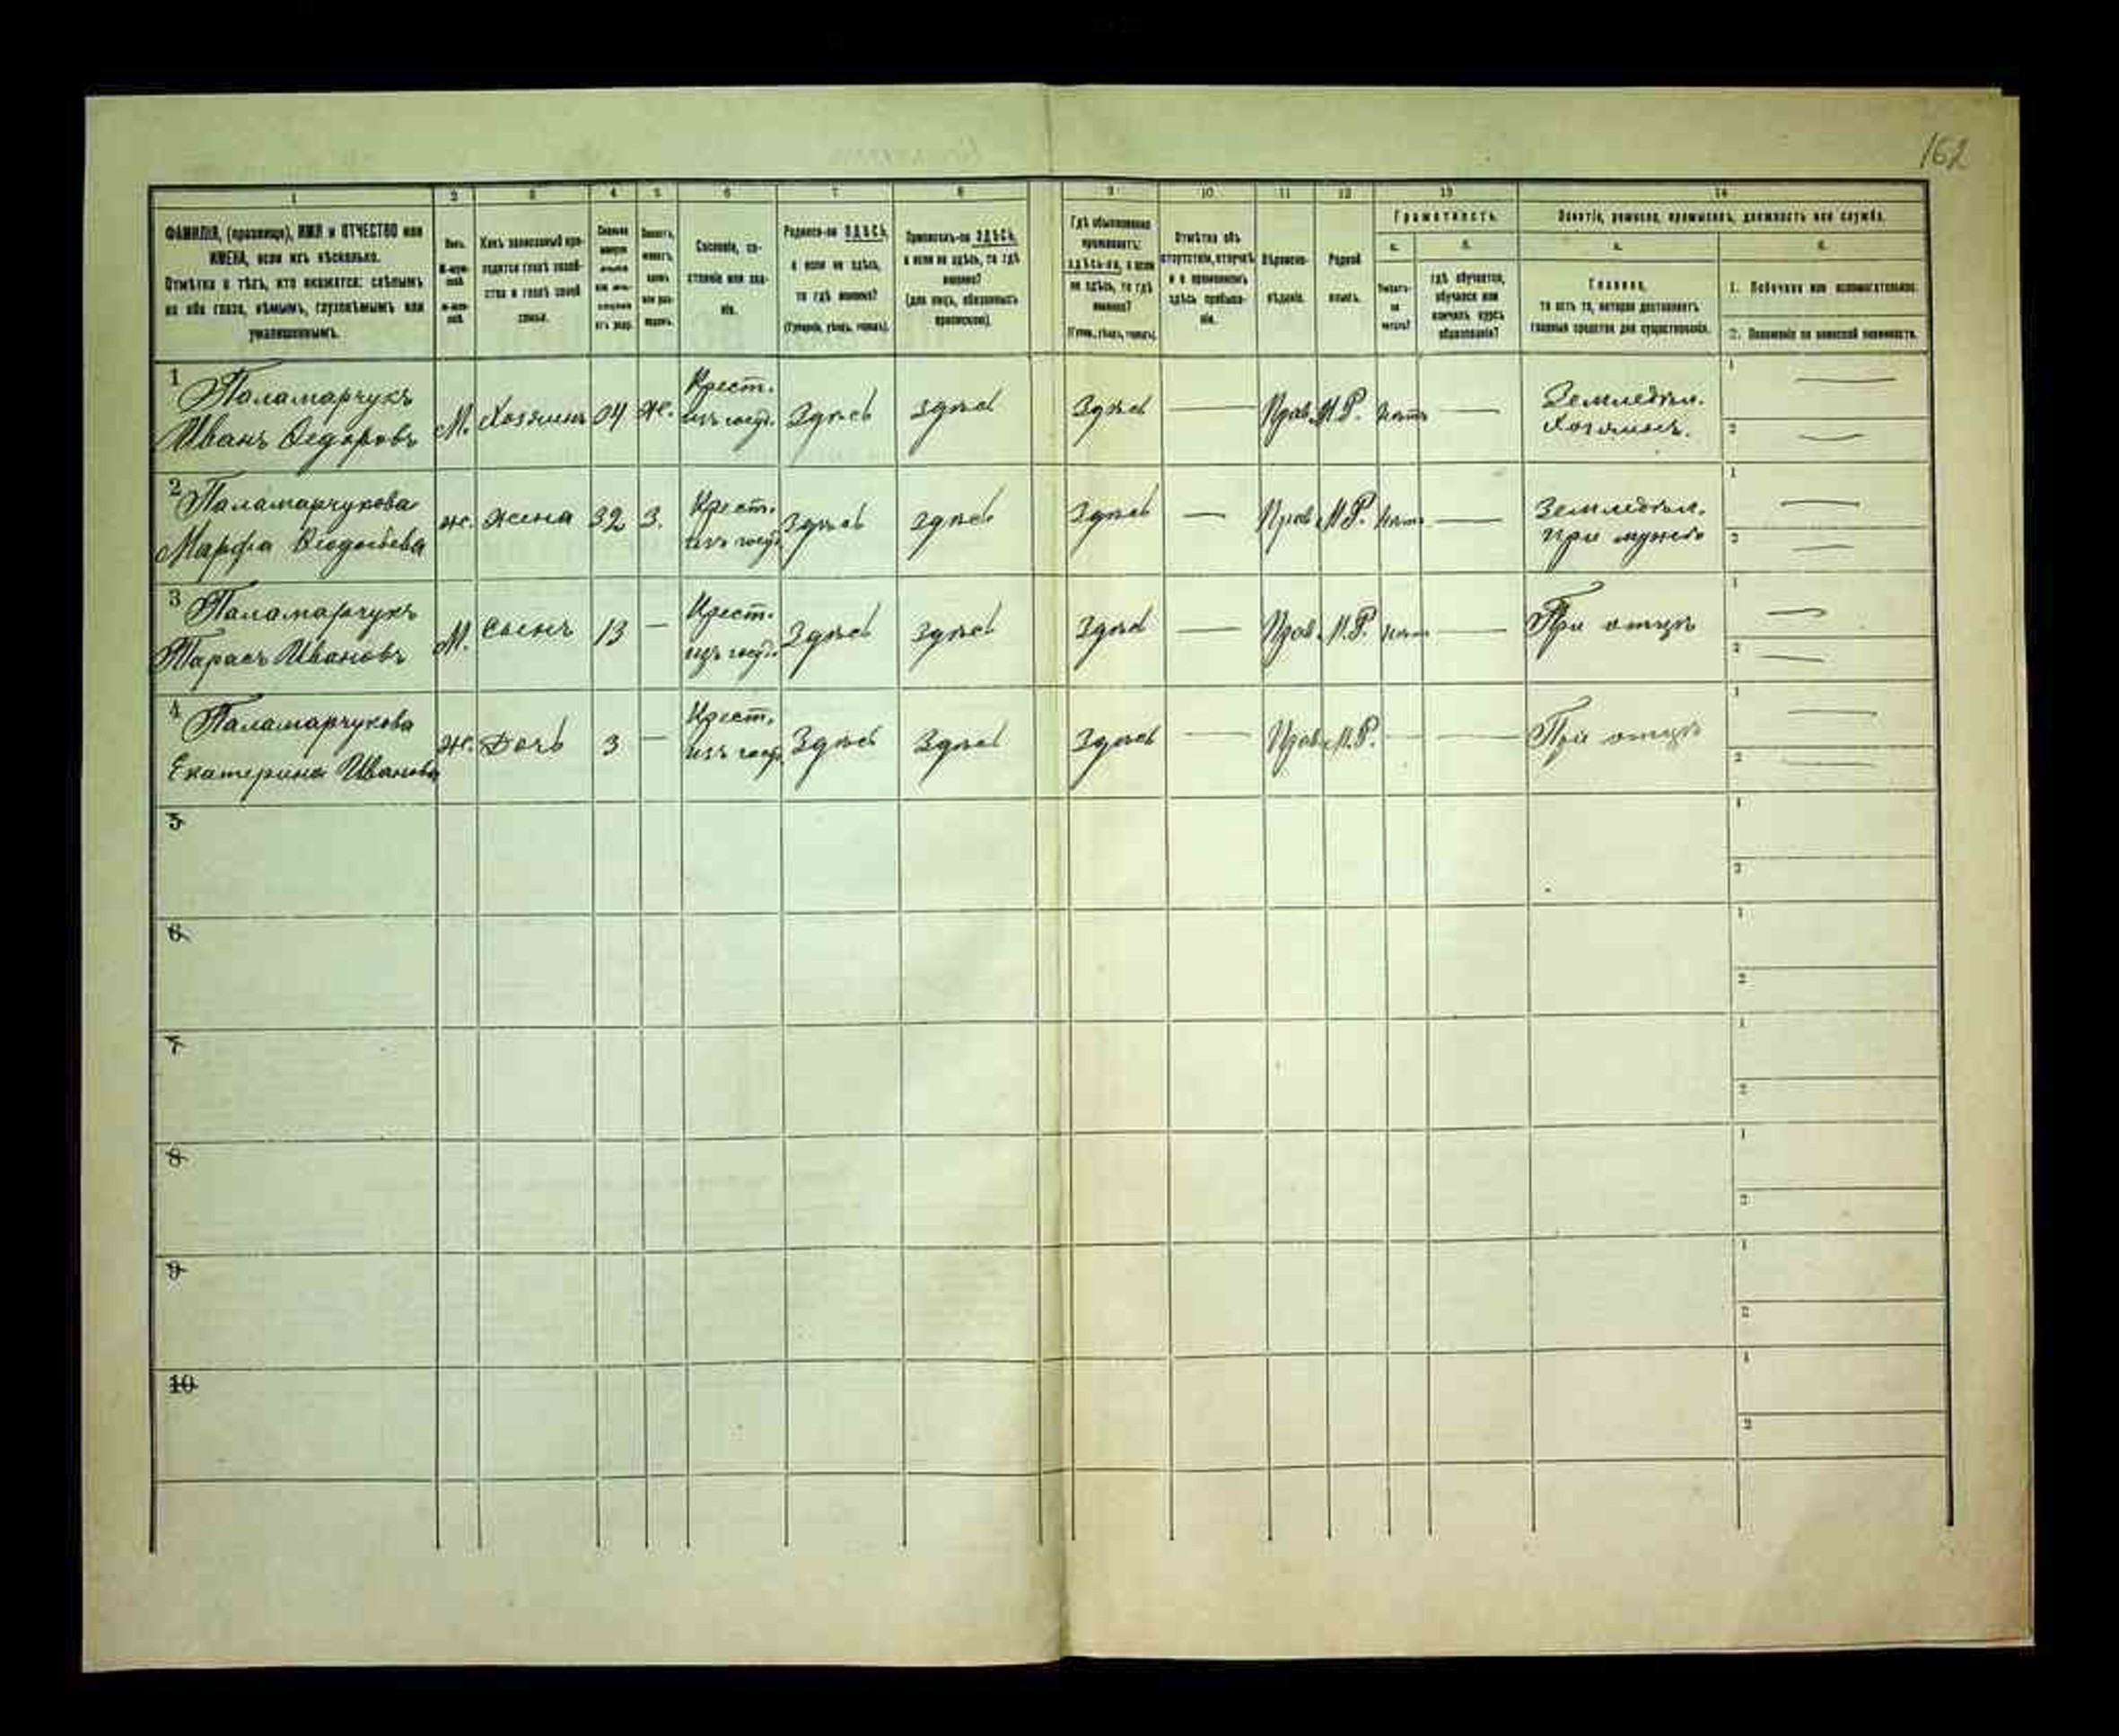 162
1 2 3 4 5 6 7 8 9 10 11 12 13 14
ФАМИЛІЯ, (прозвище), ИМЯ и ОТЧЕСТВО или
ИМЕНА, если ихъ нѣсколько.
Отмѣтка о тѣхъ, кто окажется: слѣпымъ
на оба глаза, нѣмымъ, глухонѣмымъ или
умалишеннымъ.
Полъ.
Какъ записанный при-
ходится главѣ хозяй-
ства и главѣ своей
семьи.
Сословіе, со-
стояніе или зва-
ніе.
Родился-ли ЗДѢСЬ,
а если не здѣсь,
то гдѣ именно?
(Губернія, уѣздъ, городъ).
Приписанъ-ли ЗДѢСЬ,
а если не здѣсь, то гдѣ
именно?
(для лицъ, обязанныхъ
припискою).
Гдѣ обыкновенно
проживаетъ:
здѣсь-ли, а если
не здѣсь, то гдѣ
именно?
(Губер., уѣздъ, городъ).
Отмѣтка объ
отсутствіи, отлучкѣ
и о временномъ
здѣсь пребыва-
ніи.
Вѣроиспо-
вѣданіе.
Родной
языкъ.
Грамотность.
а. б.
Умѣетъ-
ли
читать?
гдѣ обучается,
обучался или
кончилъ курсъ
образованія?
Занятіе, ремесло, промыселъ, должность или служба.
а. б.
Главное,
то есть то, которое доставляетъ
главныя средства для существованія.
1. Побочное или вспомогательное.
2. Положеніе по воинской повинности.
1 Паламарчукъ
Иванъ Ѳедоровъ
М. Хозяинъ 34 Ж. Крест.
изъ госуд. Здѣсь Здѣсь Здѣсь — Прав. М.Р. нѣтъ — Земледѣл.
Хозяинъ. 1 — 2 —
2 Паламарчукова
Марфа Ѳеодосьева
ж. жена 32 З. Крест.
изъ госуд. Здѣсь Здѣсь Здѣсь — Прав. М.Р. нѣтъ — Земледѣл.
при мужѣ 1 — 2 —
3 Паламарчукъ
Тарасъ Ивановъ
М. Сынъ 13 — Крест.
изъ госуд. Здѣсь Здѣсь Здѣсь — Прав. М.Р. нѣтъ — При отцѣ 1 — 2 —
4 Паламарчукова
Екатерина Иванова
ж. Дочь 3 — Крест.
изъ госуд. Здѣсь Здѣсь Здѣсь — Прав. М.Р. — — При отцѣ 1 — 2 —
5 1 2
6 1 2
7 1 2
8 1 2
9 1 2
10 1 2